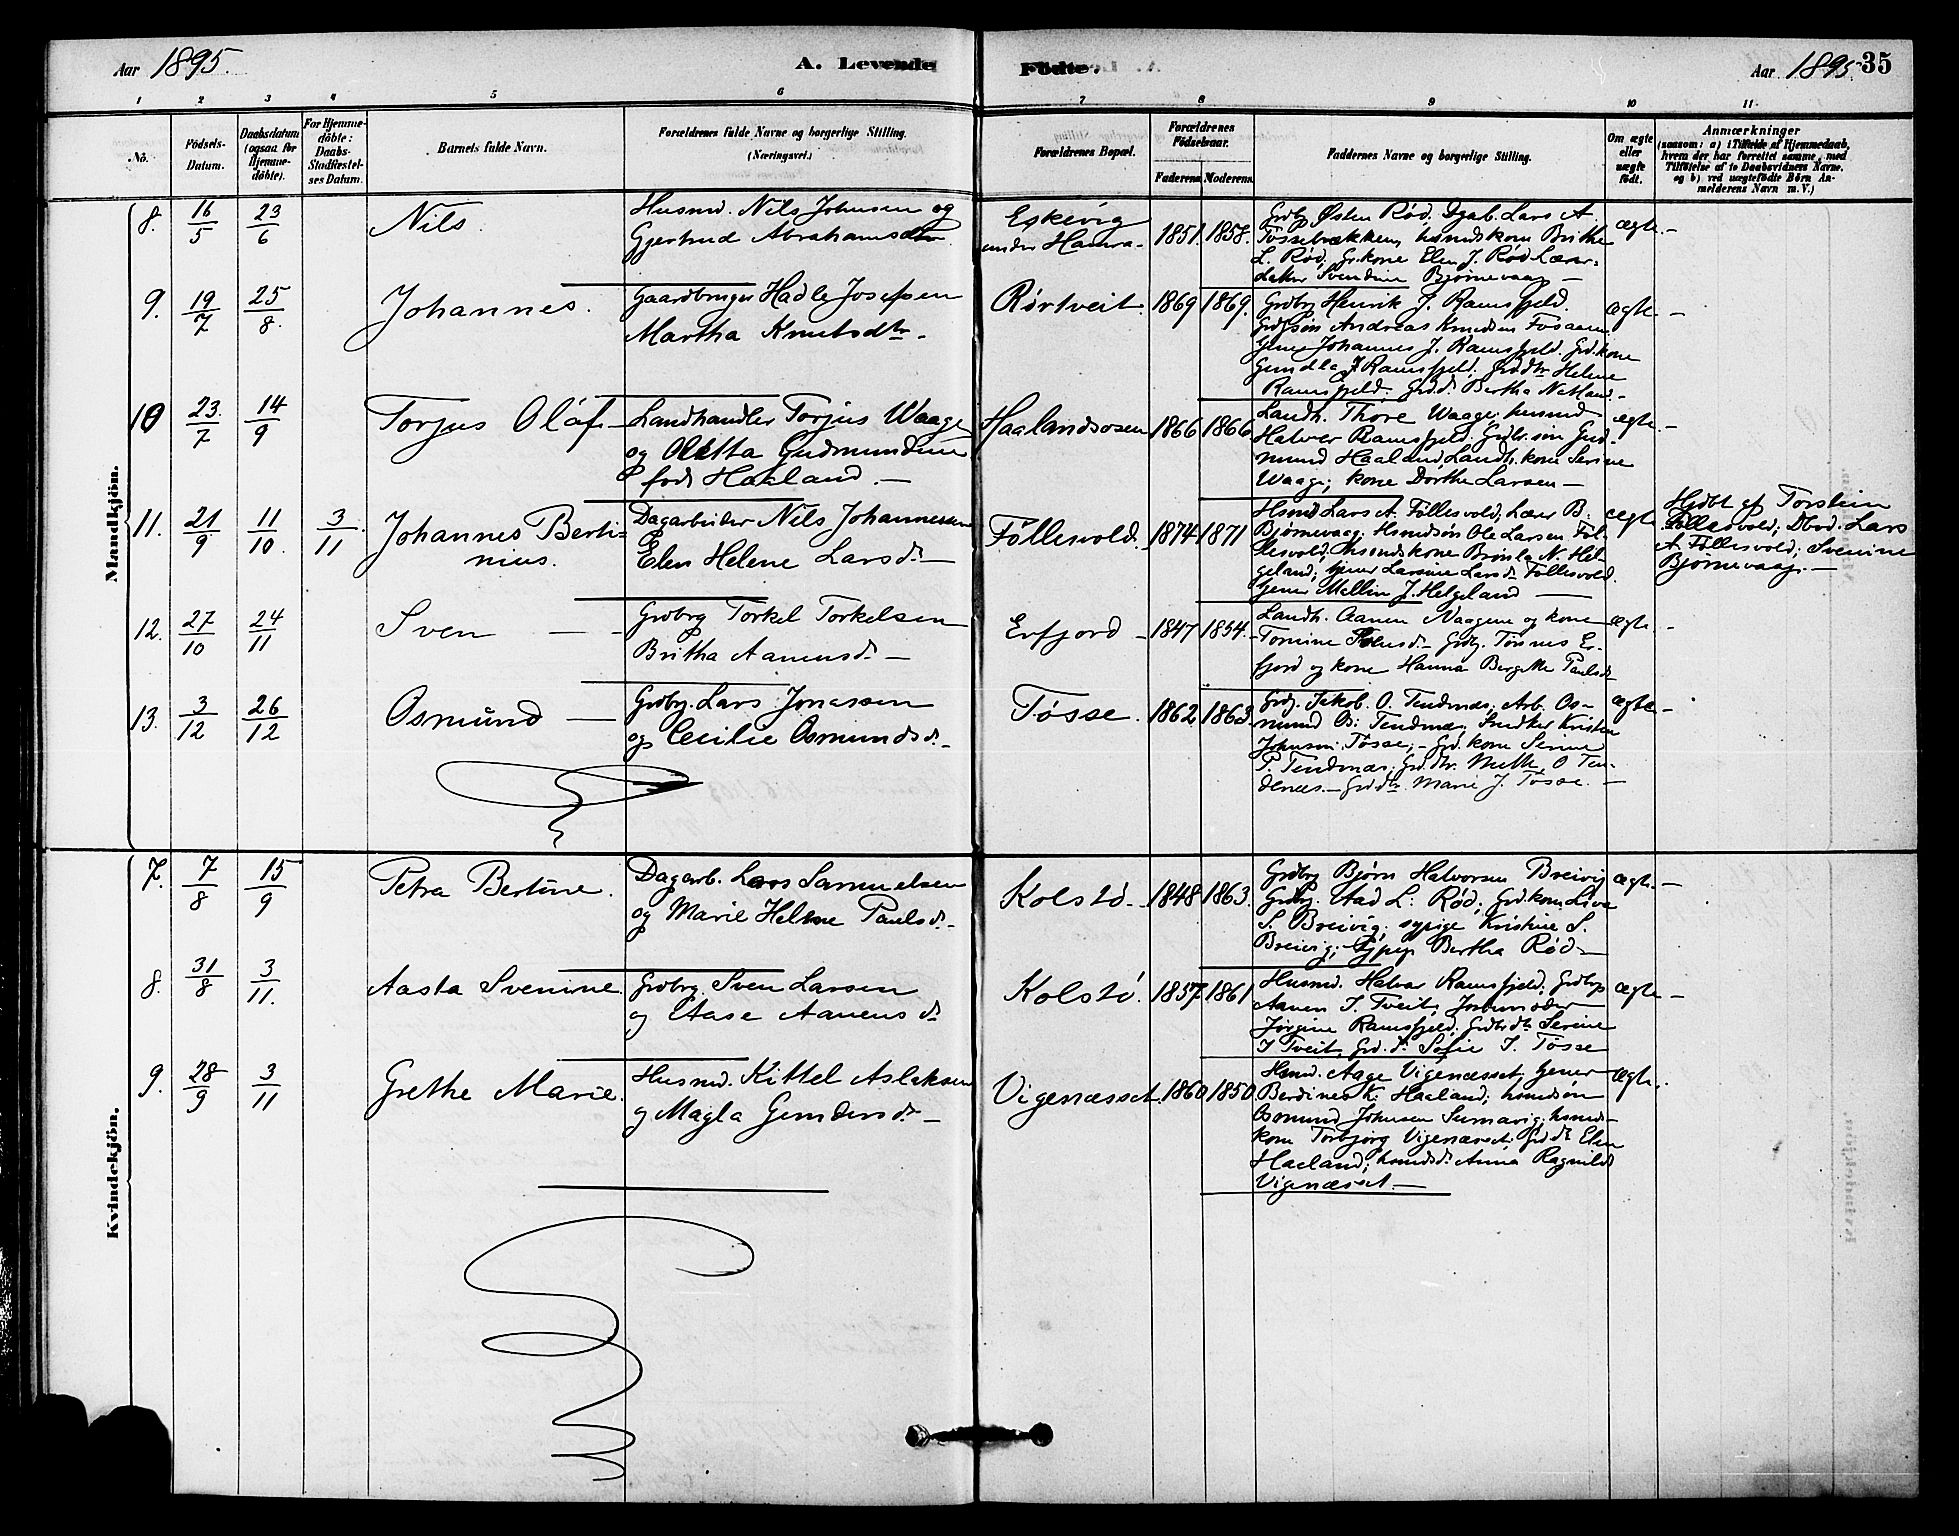 Aar 1895.
A. Levende Födte.
Aar 1895. 35
1 2 3 4 5 6 7 8 9 10 11
No.
Födsels-Datum.
Daabsdatum (ogsaa for Hjemme-döbte).
For Hjemme-döbte: Daabs-Stadfæstelses Datum.
Barnets fulde Navn.
Forældrenes fulde Navne og borgerlige Stilling. (Næringsvei.)
Forældrenes Bopæl.
Forældrenes Födselsaar.
Faderens. Moderens.
Faddernes Navne og borgerlige Stilling.
Om ægte eller uægte födt.
Anmærkninger
(saasom: a) i Tilfælde af Hjemmedaab, hvem der har forrettet samme, med Tilföielse af to Daabsvidners Navne, og b) ved uægtefödte Börn Anmelderens Navn m. V.)
Mandkjön.
8. 16/5 23/6 Nils.
Husmd. Nils Johnsen og
Gjertrud Abrahamsdtr.
Eskevig
under Hamra. 1851. 1858.
Grdbr. Østen Rød. Dgab. Lars A.
Tøssebrækken, husmdskone Britha
L. Rød. Gr.kone Elen J. Rød. Lærer-
Svendine Bjørnevaag
ægte.
9. 19/7 25/8. Johannes.
Gaardbruger Hadle Josefsen
Martha Knutsdtr.
Rørtveit. 1869 1869.
Grdbr. Henrik J. Ramsfjeld.
Grdbrsøn Andreas Knudsen Fosaaen.
Johannes J. Ramsfjeld. Grd.kone
Gundla J. Ramsfjeld. Grddtr Helene
Ramsfjeld. Grdd. Bertha Natland.
ægte.
10 23/7 14/9 Torjus Olaf.
Landhandler Torjus Waage
og Oletta Gudmundine
født Haaland.
Haalandsosen 1866 1866.
Landh. Thore Waage; husmd
Halvor Ramsfjeld. Grdbr.søn Gud-
mund Haaland. Landh. kone Serine
Waage; kone Dorthe Larsen
ægte.
11. 21/9 11/10. 3/11 Johannes Berti-
nius.
Dagarbeider Nils Johannessen
Elen Helene Larsd.
Föllesvold. 1874 1871
Hsmd Lars A. Föllesvold; Lærer B.
Bjørnevaag; Hsmdsøn Ole Larsen Föl-
lesvold; Husmdskone N. Hel-
geland; tjener Larsine Larsd. Föllesvold.
tjener Mallin J. Helgeland
ægte
Hjdbt af Torstein
Föllesvold; Lars
A. Föllesvold; Svenine
Bjørnevaag.
12. 27/10 24/11 Sven
Grdbrg Torkel Torkelsen
Britha Aanensd.
Erfjord 1847 1854.
Landh. Aanen Vaagene og kone
Tomine. Grdbr. Tønnes Er-
fjord og kone Hanna Bergitte Paulsd.
ægte.
13. 3/12 26/12 Osmund
Grdbrg. Lars Jonassen
og Cecilie Osmundsd.
Tösse. 1862. 1863.
Grdbr. Jakob O. Tendenæs, Arb. Os-
mund O. Tendenæs, Snedker Kristen
Johnsen Tösse; Grd.kone Serine
P. Tendenæs, Grd.dtr. Mette O. Ten-
denæs. Grddtr. Marie J. Tösse.
ægte.
Kvindekjön.
7. 7/8 15/9 Petra Bertine.
Dagarb. Lars Samuelsen
og Marie Helene Paulsd.
Kolstö. 1848 1863.
Grdbrg Bjørn Halvorsen Breivig
Grdbr. Aad L. Rød; Grd.kone Liva
S. Breivig; sypige Kristine S.
Breivig; Bertha Rød
ægte.
8. 31/8 3/11. Aasta Svenine
Grdbrg. Sven Larsen
og Aase Aanensd.
Kolstö. 1857. 1861
Husmd. Halvor Ramsfjeld, Grdbrg
Aanen I. Tveit, Jordmoder
Jørgine Ramsfjeld, Grdbrdtr Serine
I. Tveit, Grd.d. Sofie I. Tösse
ægte
9. 28/9 3/11 Grethe Marie.
Husmd. Kittel Aslaksen
og Magla Gundersd.
Vigenæsset. 1860 1850.
Hsmd. Aage Vigenæsset, tjener
Berdines K. Haaland; hsmdsøn
Osmund Johnsen Sumavig; hsmds-
kone Torbjørg Vigenæsset. Grdd. Elen
Haaland; hsmdsd. Anna Ragnild
Vigenæsset.
ægte.